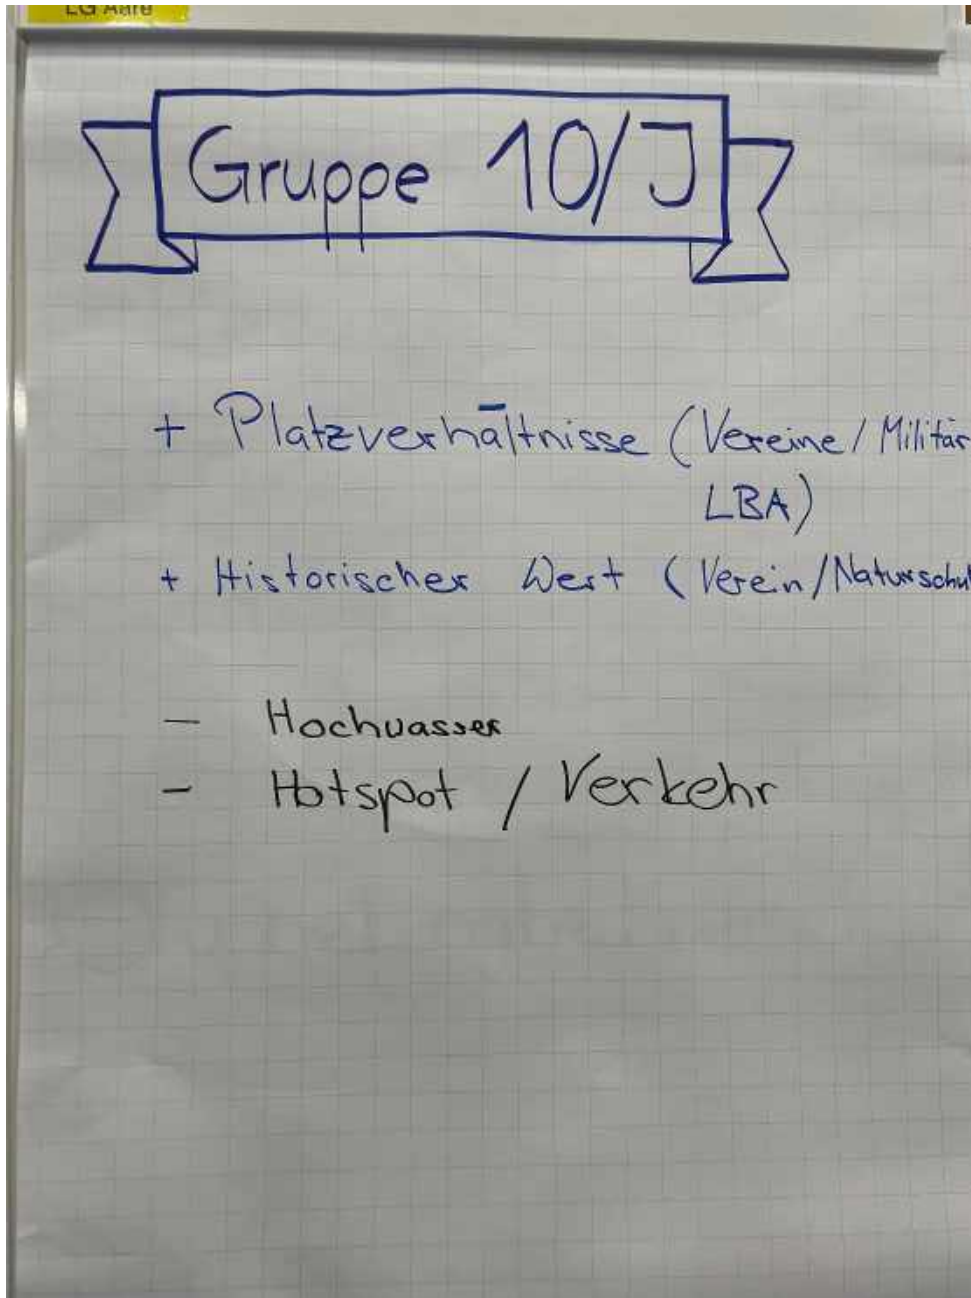 LG Aare
Gruppe 10/J
+ Platzverhältnisse (Vereine/Militär
LBA)
+ Historischer Wert (Verein/Naturschu
- Hochwasser
- Hotspot / Verkehr